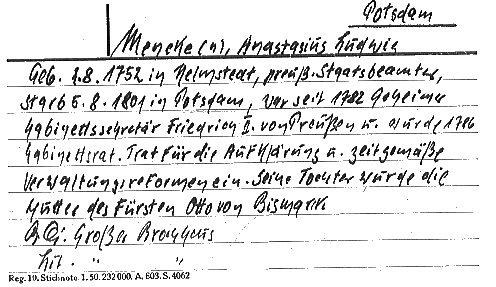 Potsdam
Mencke(n), Anastasius Ludwig
Geb. 2.8. 1752 in Helmstedt, preuß. Staatsbeamter,
starb 5.8. 1801 in Potsdam, war seit 1782 Geheimer
Kabinettssekretär Friedrich II. von Preußen u. wurde 1786
Kabinettsrat. Trat für die Aufklärung u. zeitgemäße
Verwaltungsreformen ein. Seine Tochter wurde die
Mutter des Fürsten Otto von Bismark
Großer Brockhaus
Lit. " "
Reg. 19. Stichnote. 1. 50. 232000. A. 803. S. 4062